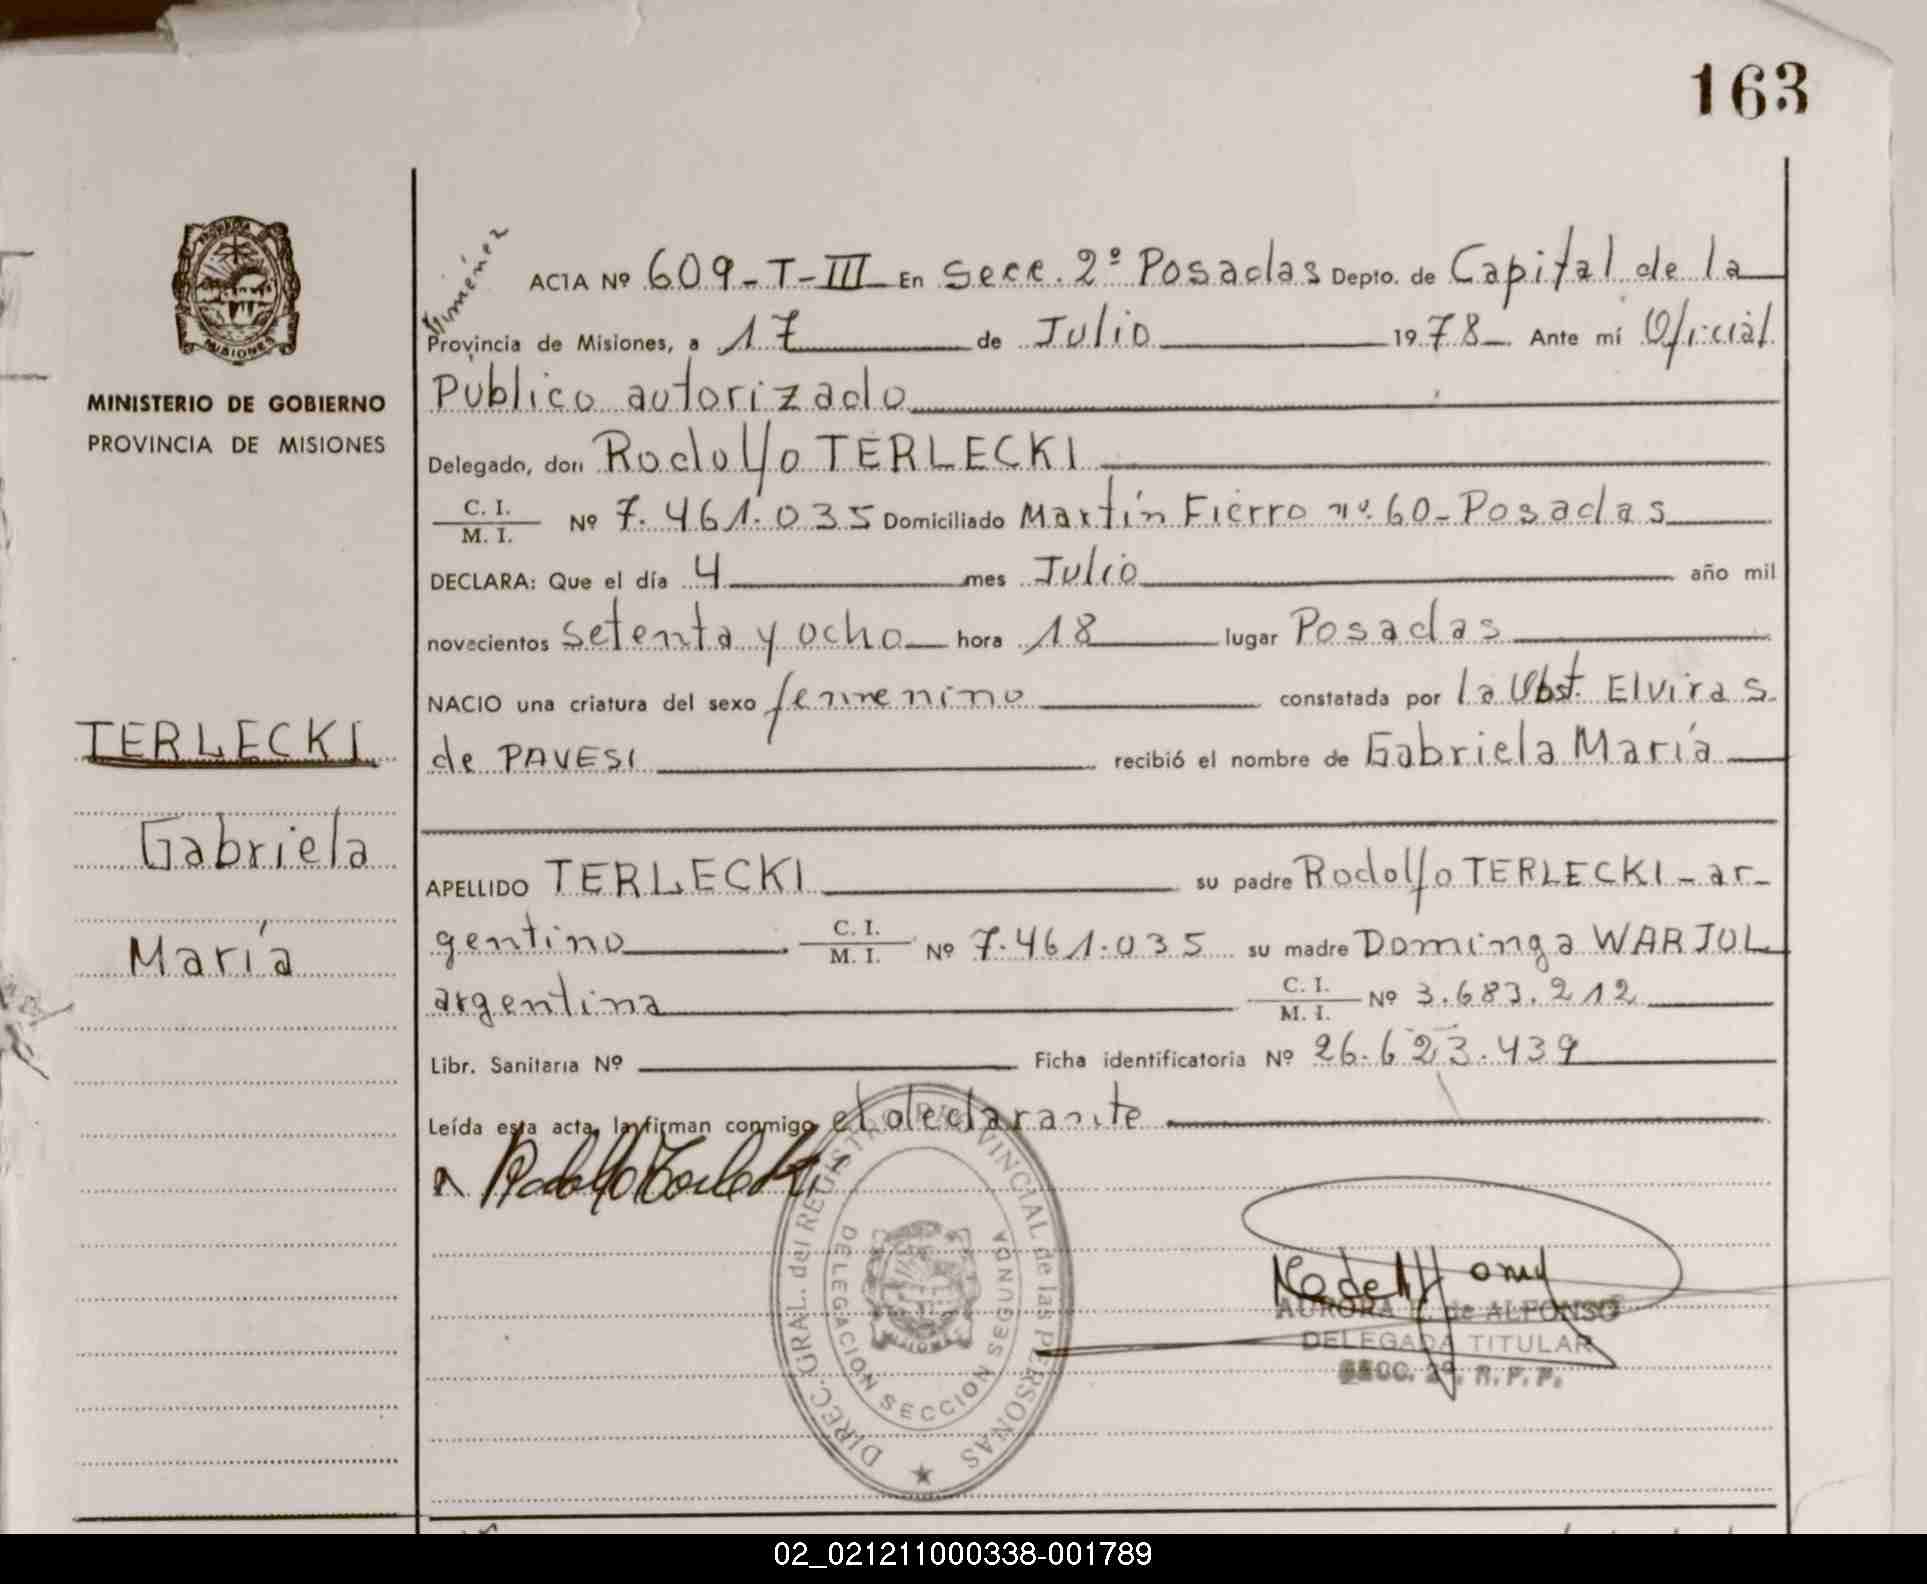 163
MISIONES
MINISTERIO DE GOBIERNO
PROVINCIA DE MISIONES
TERLECKI
Gabriela
María
Jiménez
ACTA Nº 609-T-III En Secc. 2º Posadas Depto. de Capital de la
Provincia de Misiones, a 17 de Julio 1978 Ante mí Oficial
Público autorizado
Delegado, don Rodolfo TERLECKI
C. I.
M. I. Nº 7.461.035 Domiciliado Martín Fierro nº 60-Posadas
DECLARA: Que el día 4 mes Julio año mil
novecientos setenta y ocho hora 18 lugar Posadas
NACIO una criatura del sexo femenino constatada por la Obst. Elvira S.
de PAVESI recibió el nombre de Gabriela María
APELLIDO TERLECKI su padre Rodolfo TERLECKI - ar-
gentino C. I.
M. I. Nº 7.461.035 su madre Dominga WARJUL
argentina C. I.
M. I. Nº 3.683.212
Libr. Sanitaria Nº Ficha identificatoria Nº 26.623.439
Leída esta acta, la firman conmigo el declarante
Rodolfo Terlecki
DIREC. GRAL. del REGISTRO PROVINCIAL de las PERSONAS
DELEGACION SECCION SEGUNDA
MISIONES
AURORA de ALFONSO
DELEGADA TITULAR
SECC. 2ª. R. P. P.
02_021211000338-001789